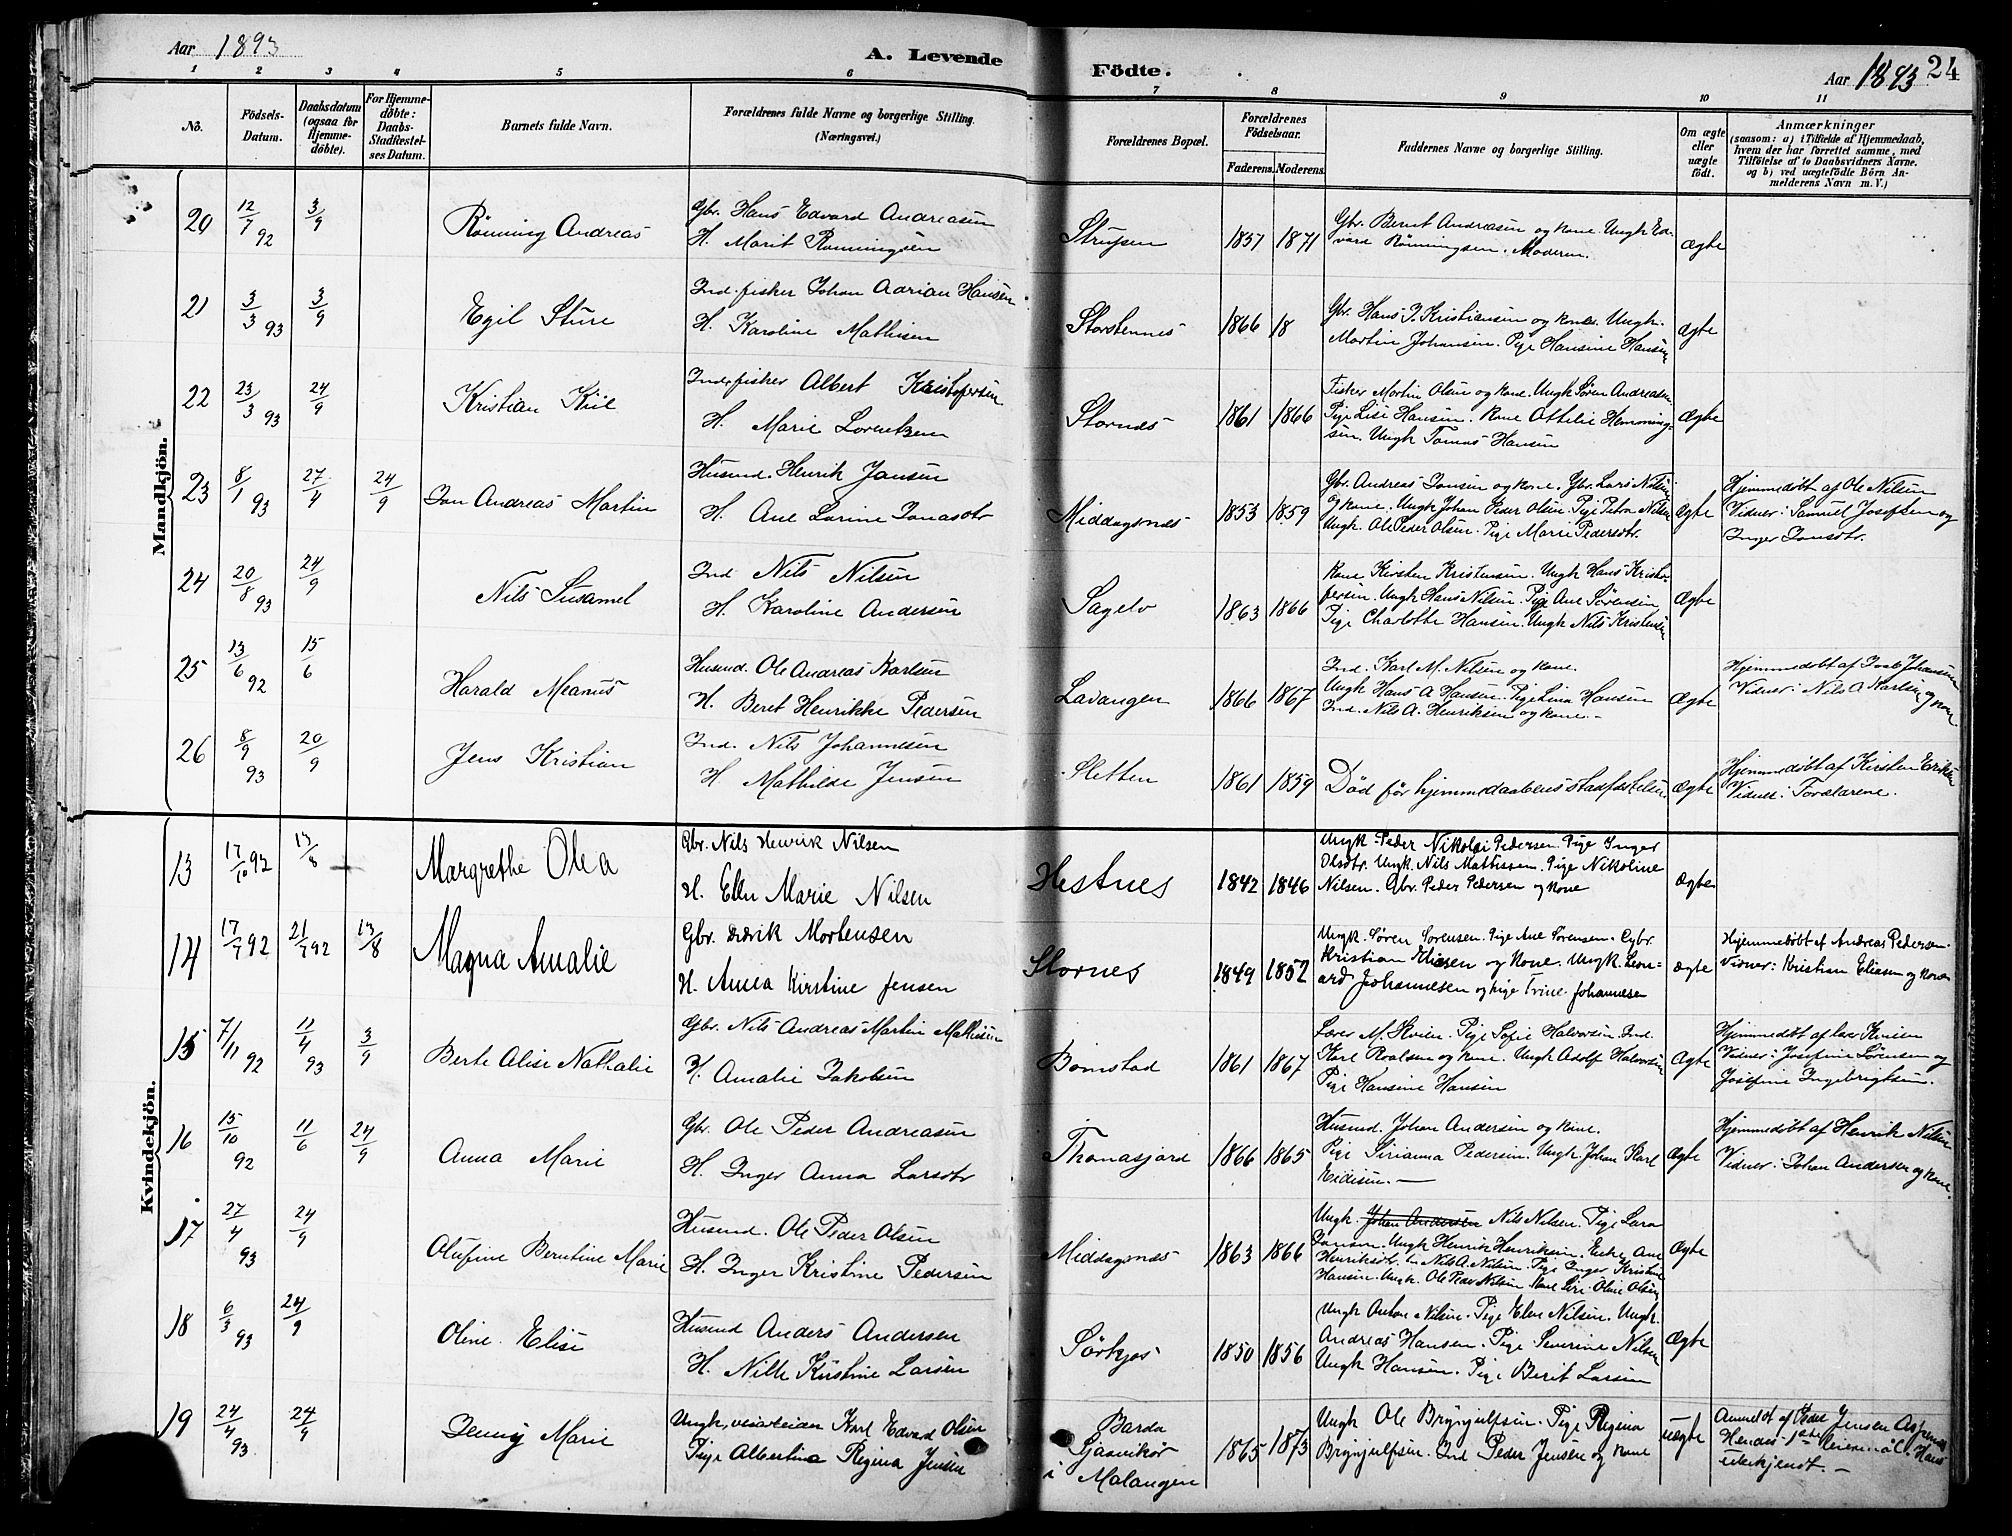 Aar 1893
A. Levende
Födte.
Aar 1893
24
1 2 3 4 5 6 7 8 9 10 11
No.
Födsels-Datum.
Daabsdatum (ogsaa for Hjemme-döbte).
For Hjemme-döbte: Daabs-Stadfæstel-ses Datum.
Barnets fulde Navn.
Forældrenes fulde Navne og borgerlige Stilling.
(Næringsvei.)
Forældrenes Bopæl.
Forældrenes Födselsaar.
Faderens. Moderens.
Faddernes Navne og borgerlige Stilling.
Om ægte eller uægte födt.
Anmærkninger
(saasom: a) i Tilfælde af Hjemmedaab,
hvem der har forrettet samme, med
Tilföielse af to Daabsvidners Navne.
og b) ved uægtefödte Börn An-
melderens Navn m. V.)
Mandkjön.
20 12/7 92 3/9 Rönning Andreas
Gbr. Hans Edvard Andreasen
H. Marit Rönningsen
Strupen 1857 1871
Gbr. Bernt Andreasen og kone. Ungk Ed-
vard Rönningsen. Moderen.
Ægte
21 3/3 93 3/9 Egil Sture
Ind. fisker Johan Adrian Hansen
H. Karoline Mathisen
Storstennes 1866 18
Gbr. Hans P. Kristiansen og kone. Ungk.
Martin Johansen. Pige Hansine Hansen
Ægte
22 23/3 93 24/9 Kristian Kiil
Ind. fisker Albert Kristofersen
H. Marie Lorentzen
Stornes 1861 1866
Fisker Martin Olsen og kone. Ungk Sören Andreasen
Pige Lise Hansen. Kone Ottilie Henning-
sen. Ungk Tomas Hansen
Ægte
23 8/1 93 27/4 24/9 Jan Andreas Martin
Husmd. Henrik Jansen
H. Ane Larine Jonasdtr
Middagsnes 1853 1859
Gbr. Andreas Jansen og kone. Gbr. Lars Nilsen
og kone. Ungk Johan Peder Olsen. Pige Petra Nilsen
Ungk. Ole Peder Olsen. Pige Marie Pedersdtr.
Ægte
Hjemmedöbt af Ole Nilsen
Vidner: Samuel Josefsen og
Inger Jonsdtr.
24 20/8 93 24/9 Nils Susamel
Ind Nils Nilsen
H. Karoline Andersen
Sagelv 1863 1866
Kone Kirsten Kristensen. Ungk Hans Kristof-
fersen. Ungk Hans Nilsen. Pige Ane Sörensen
Pige Charlotte Hansen. Ungk Nils Kristensen
Ægte
25 13/6 92 15/6 Harald Meanus
Husmd. Ole Andreas Karlsen
H. Beret Henrikke Pedersen
Lavangen 1866 1867
Ind. Karl M. Nilsen og kone.
Ungk Hans A Hansen. Pige Lina Hansen
Ind. Nils A. Henriksen og kone.
Ægte
Hjemmedöbt af Johansen
Vidner: Nils A Karlsen og kone
26 8/9 93 20/9 Jens Kristian
Ind. Nils Johannesen
H Mathilde Jensen
Sletten 1861 1859
Död för hjemmedaabens stadfæstelse.
Ægte
Hjemmedöbt af Kirsten Eriksen
Vidner: Forældrene.
Kvindekjön.
13 17/10 92 13/8 Margrethe Olea
Gbr. Nils Henrik Nilsen
H. Ellen Marie Nilsen
Hestnes 1842 1846
Ungk. Peder Nikolai Pedersen. Pige Inger
Olsdtr. Ungk. Nils Mathissen. Pige Nikoline
Nilsen. Gbr. Peder Pedersen og kone
Ægte
14 17/7 92 21/7 92 13/8 Magna Amalie
Gbr. Didrik Mortensen
H. Anna Kirstine Jensen
Stornes 1849 1852
Ungk. Sören Sorensen. Pige Ane Sorensen. Gbr.
Kristian Eliesen og kone. Ungk. Leon-
ard Johannesen og Pige Trine Johannesen
Ægte
Hjemmedöbt af Andreas Pedersen
Vidner: Kristian Eliesen og kone
15 7/11 92 11/4 93 3/9 Berte Alise Nathalie
Gbr. Nils Andreas Martin Mathisen
H. Amalie Jakobsen
Bömstad 1861 1867
Lærer M. Hvien. Pige Sofie Halvorsen. Ind.
Karl Roaldsen og kone. Ungk Adolf Halvorsen
Pige Hansine Hansen
Ægte
Hjemmedöbt af
Vidner: Josefine Sörensen og
Josefine Ingebrigtsen.
16 15/10 92 11/6 24/9 Anna Marie
Gbr. Ole Peder Andreasen
H. Inger Anna Larsdtr
Thomasjord 1866 1865
Husmd. Johan Andersen og kone.
Pige Sirianna Pedersen. Ungk Johan Karl
Eidisen.
Ægte
Hjemmedöbt af Henrik Nilsen
Vidner: Johan Andersen og kone.
17 27/4 93 24/9 Olufine Berntine Marie
Husmd. Ole Peder Olsen
H. Inger Kristine Pedersen
Middagsnes 1863 1866
Ungk. Johan Andersen Nils Nilsen. Pige Lara
Jansen. Ungk Henrik Henriksen. Enke Ane
Henriksdtr. Nils A. Nilsen. Pige Inger Kristine
Hansen. Ungk. Ole Peder Nilsen. Kone Siri Oline Olsen
Ægte
18 6/3 93 24/9 Oline Elise
Husmd Anders Andersen
H. Nille Kirstine Larsen
Sörkjos 1850 1856
Ungk Anton Nilsen. Pige Elen Nilsen. Ungk.
Andreas Hansen. Pige Severine Nilsen
Ungk Hansen. Pige Berit Larsen
Ægte
19 24/4 93 24/9 Jenny Marie
Ungk, Karl Edvard Olsen
Pige Albertina Regina Jensen
Bardo
i Malangen
1865 1873
Ungk Ole Brynjulfsen. Pige Regina
Brynjulfsen. Ind Peder Jensen og kone
uægte
Anmeldt af Peder Jensen
Hendes 1ste Leiermaal. Hans